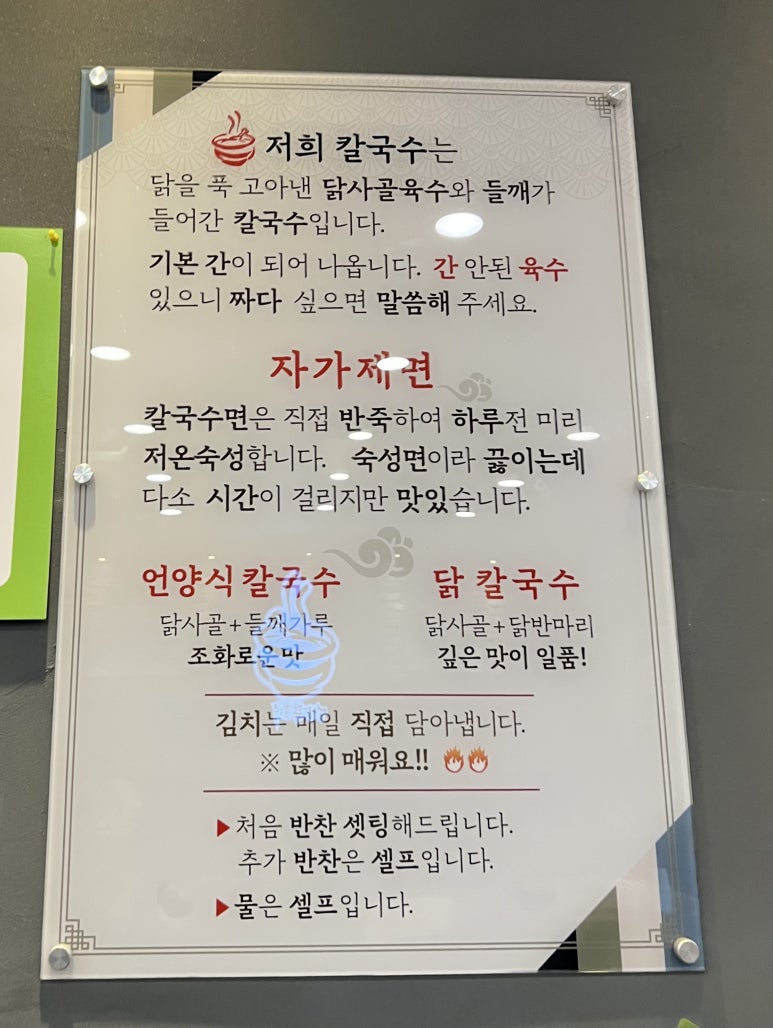 저희 칼국수는
닭을 푹 고아낸 닭사골육수와 들깨가
들어간 칼국수입니다.
기본 간이 되어 나옵니다. 간 안된 육수
있으니 짜다 싶으면 말씀해 주세요.
자가제면
칼국수면은 직접 반죽하여 하루전 미리
저온숙성합니다. 숙성면이라 끓이는데
다소 시간이 걸리지만 맛있습니다.
언양식칼국수
닭사골+들깨가루
조화로운맛
닭 칼국수
닭사골+닭반마리
깊은 맛이 일품!
김치는 매일 직접 담아냅니다.
※ 많이 매워요!!
▶처음 반찬 셋팅해드립니다.
추가 반찬은 셀프입니다.
▶물은 셀프입니다.